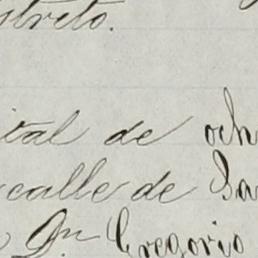 strito.
ital de och
calle de Sa
Dn Gregorio